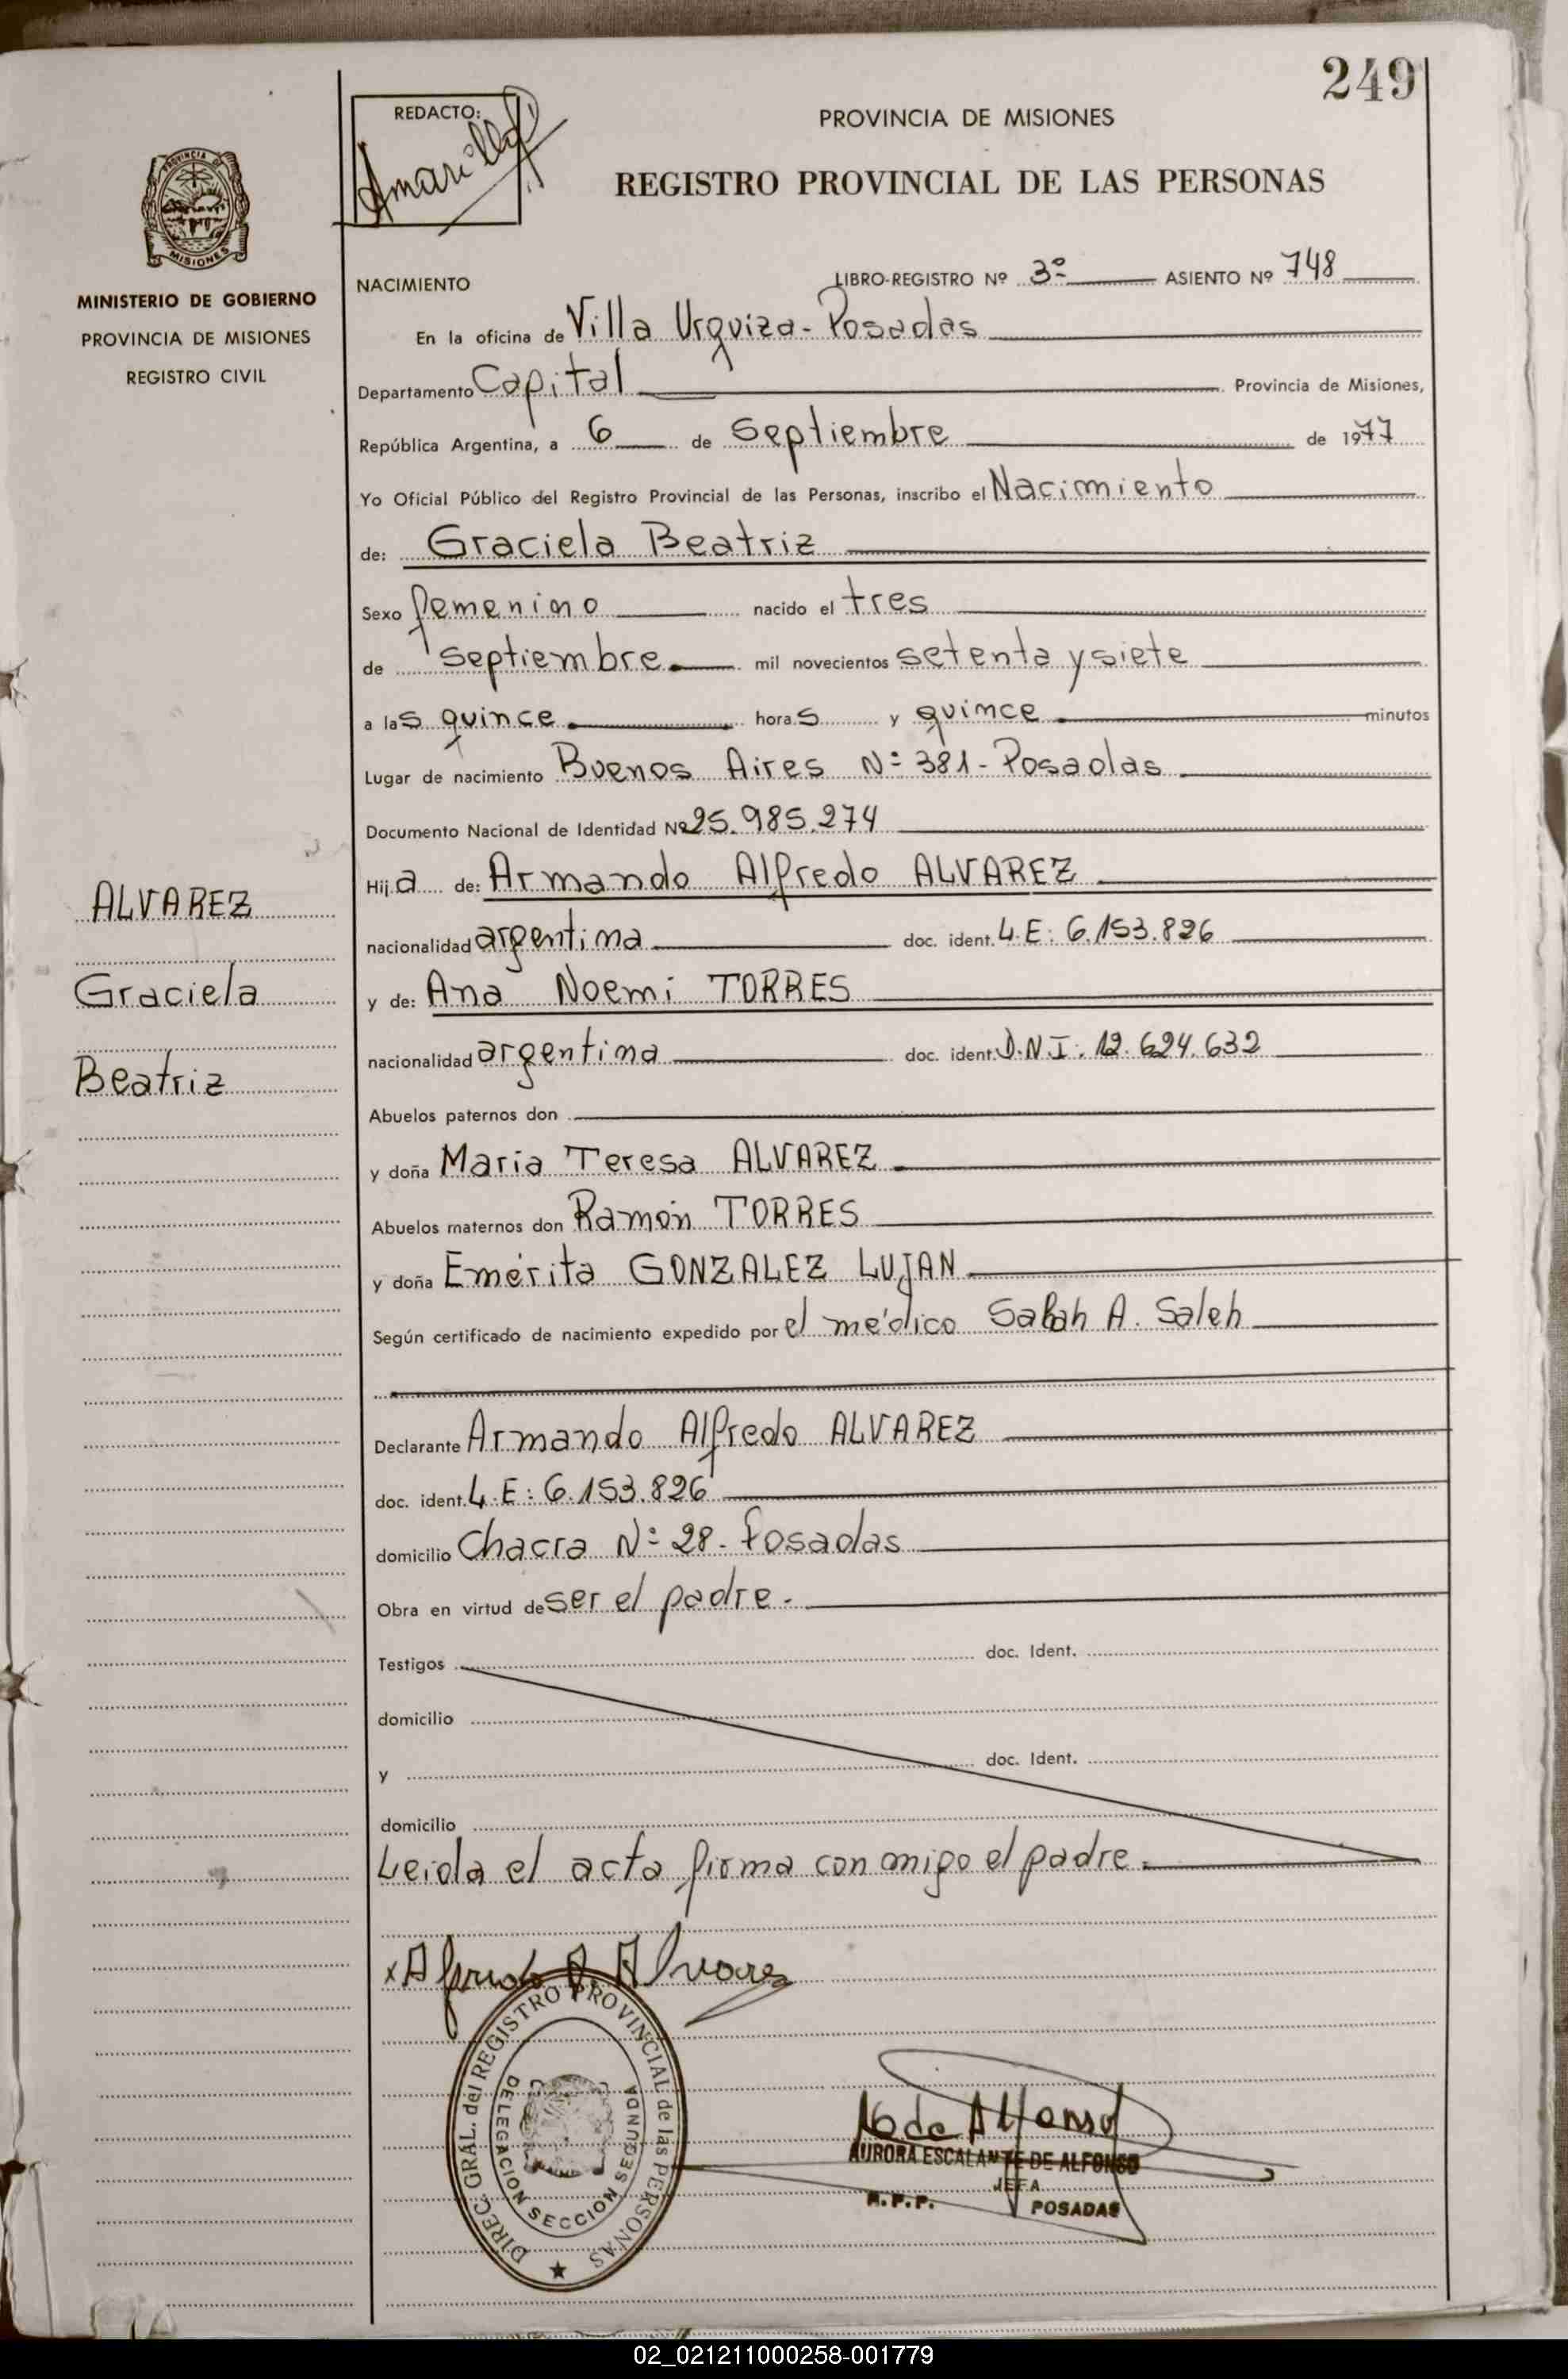 249
REDACTO:
Amarilla
PROVINCIA DE MISIONES
REGISTRO PROVINCIAL DE LAS PERSONAS
PROVINCIA DE
MISIONES
MINISTERIO DE GOBIERNO
PROVINCIA DE MISIONES
REGISTRO CIVIL
ALVAREZ
Graciela
Beatriz
NACIMIENTO LIBRO-REGISTRO Nº 3º ASIENTO Nº 748
En la oficina de Villa Urquiza - Posadas
Departamento Capital Provincia de Misiones,
República Argentina, a 6 de Septiembre de 1977
Yo Oficial Público del Registro Provincial de las Personas, inscribo el Nacimiento
de: Graciela Beatriz
Sexo femenino nacido el tres
de septiembre mil novecientos setenta y siete
a las quince horas y quince minutos
Lugar de nacimiento Buenos Aires Nº 381 - Posadas
Documento Nacional de Identidad Nº 25.985.274
Hija de: Armando Alfredo ALVAREZ
nacionalidad argentina doc. ident. L.E: 6.153.826
y de: Ana Noemi TORRES
nacionalidad argentina doc. ident. D.N.I: 12.624.632
Abuelos paternos don
y doña Maria Teresa ALVAREZ
Abuelos maternos don Ramón TORRES
y doña Emérita GONZALEZ LUJAN
Según certificado de nacimiento expedido por el médico Sabah A. Saleh
Declarante Armando Alfredo ALVAREZ
doc. ident. L.E: 6.153.826
domicilio Chacra Nº 28 - Posadas
Obra en virtud de ser el padre.
Testigos doc. Ident.
domicilio
y doc. Ident.
domicilio
Leida el acta firma conmigo el padre.
x Alfredo A. Alvarez
DIREC. GRAL. del REGISTRO PROVINCIAL de las PERSONAS
DELEGACION SECCION SEGUNDA
A E de Alfonso
AURORA ESCALANTE DE ALFONSO
JEFA
R.P.P. POSADAS
02_021211000258-001779